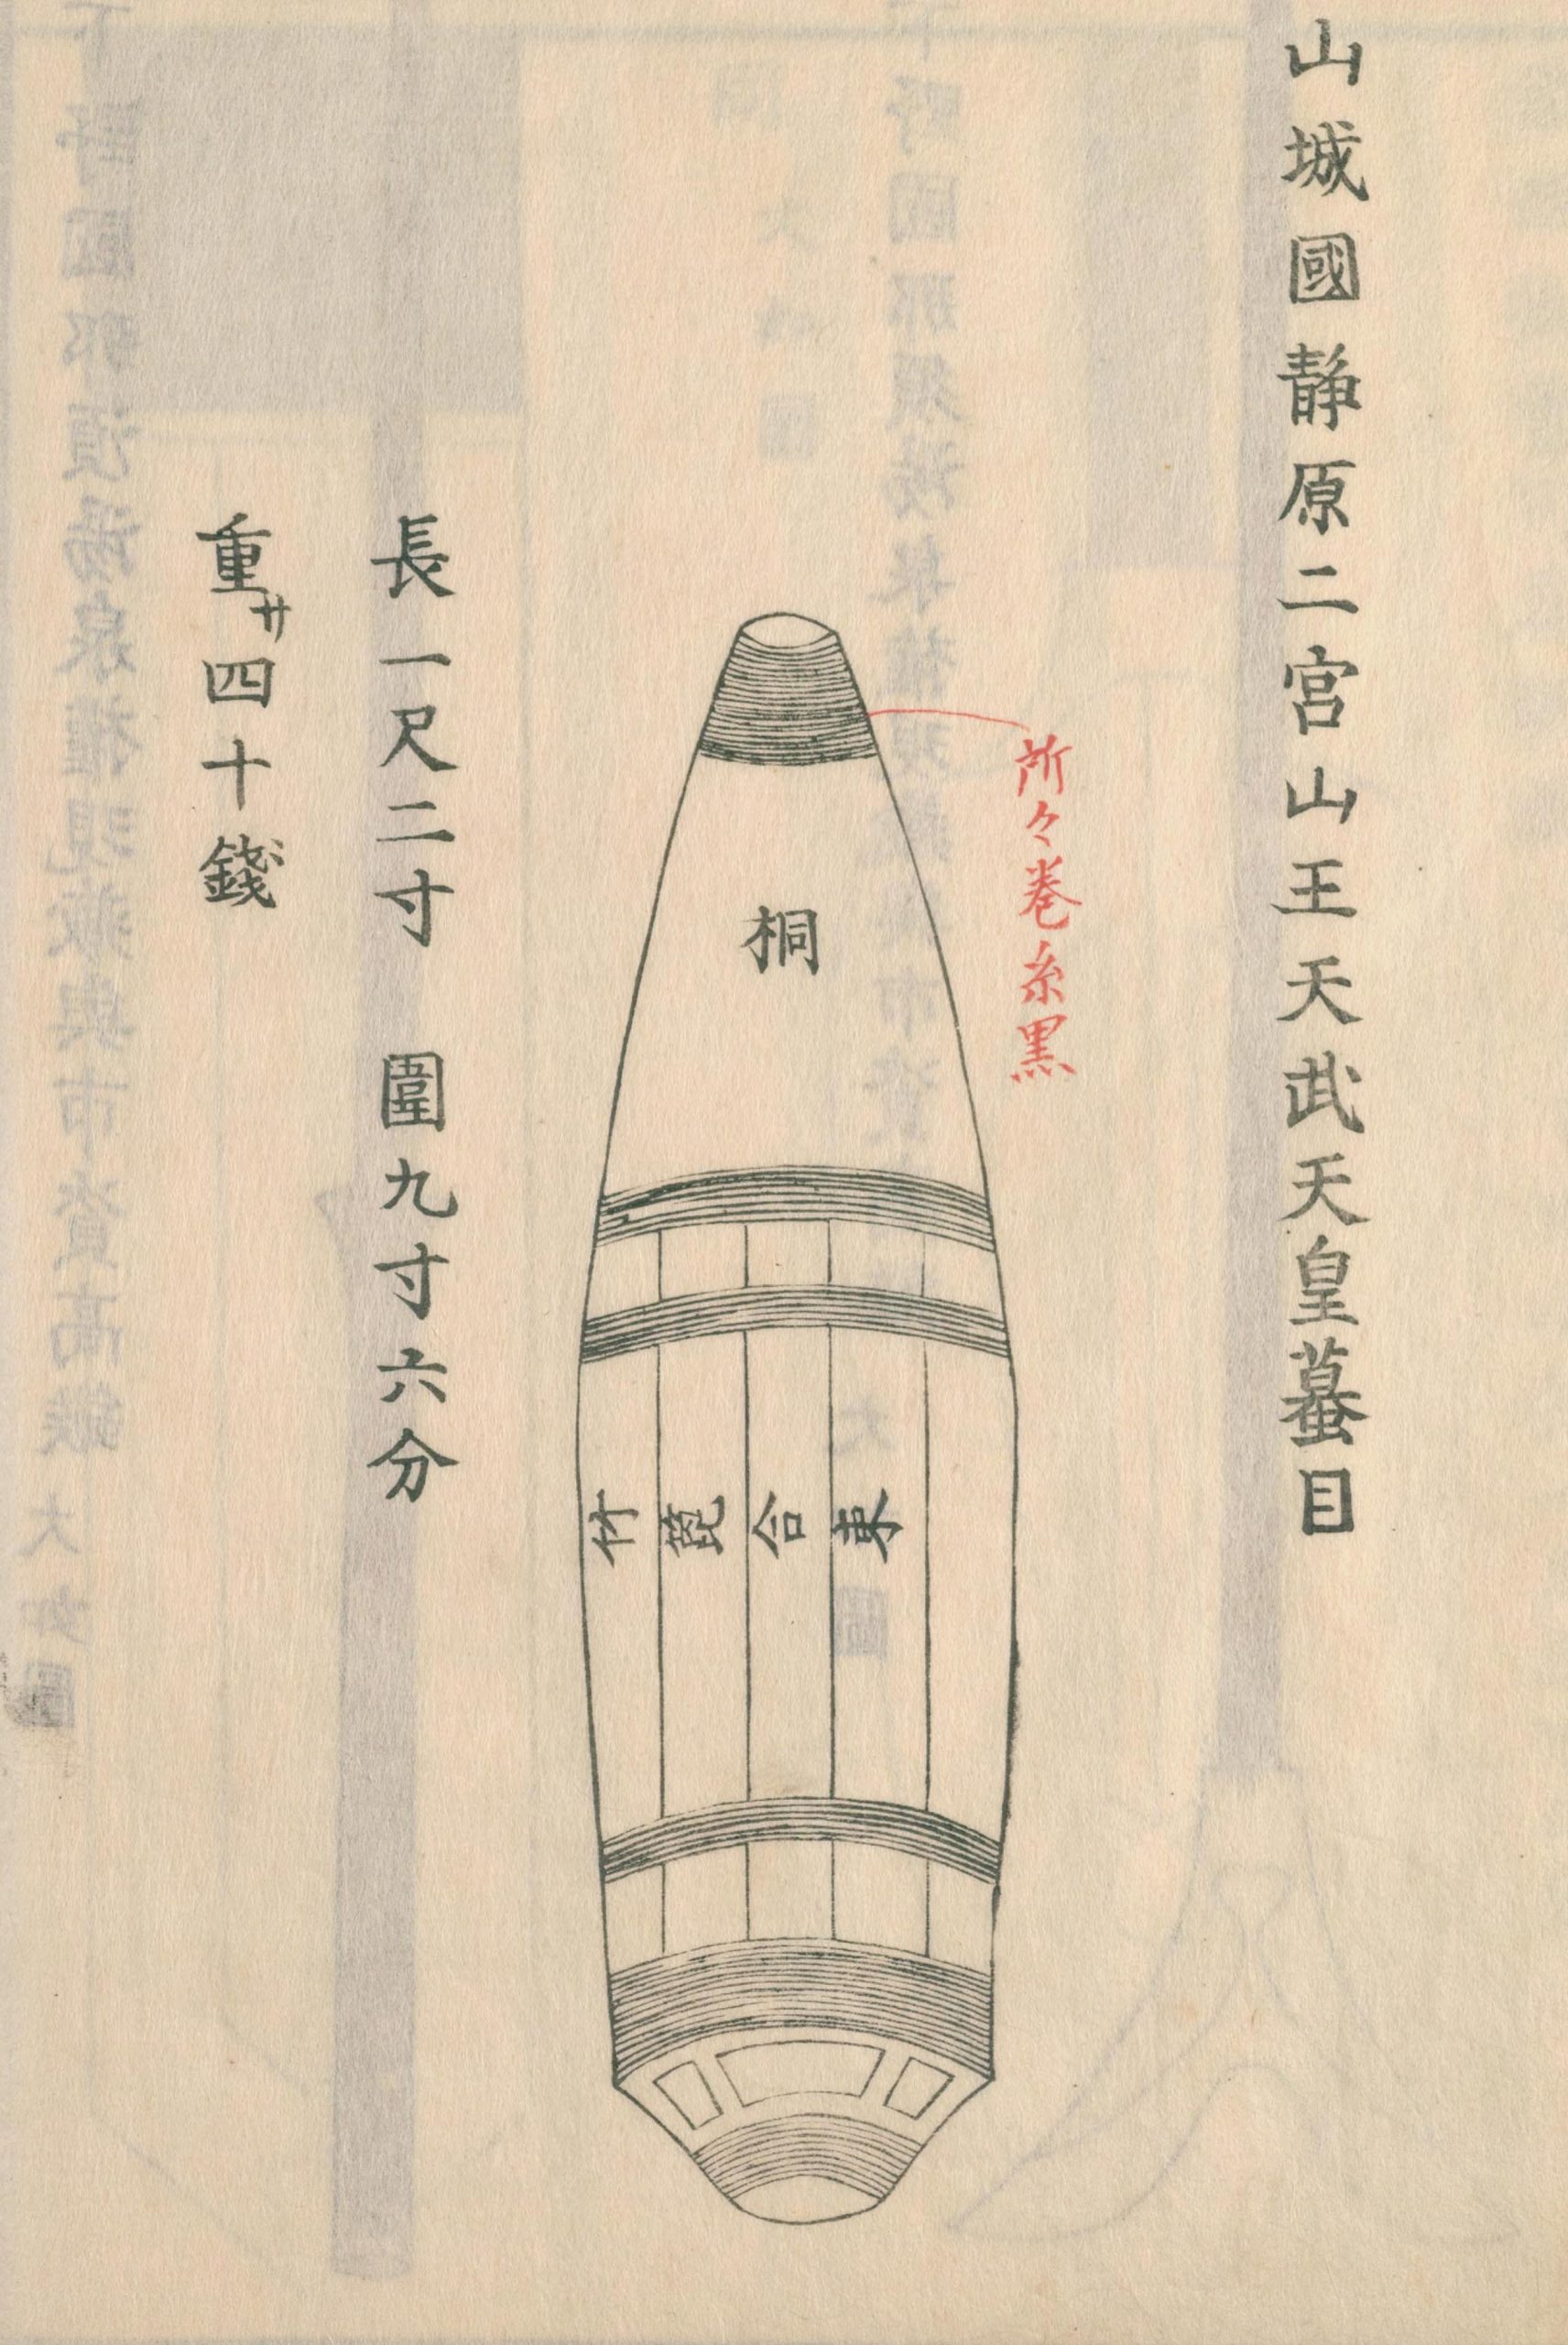 山城國静原二宮山王天武天皇蟇目
所々巻糸黒
桐
竹箆合東
長一尺二寸　圍九寸六分
重サ四十錢